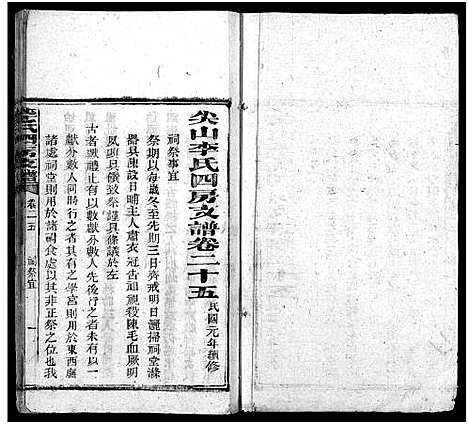 尖山李氏四房支譜卷二十五 民國元年續修
祠祭事宜
祭期以每歲冬至先期三日齊戒明日灑掃祠堂滌
器具陳設日晡主人肅衣冠告祖視殺陳毛血厥明
夙興具儀致祭謹具條議於左
古者祼禮止有以數獻分數人先後行之者未有以一
獻分數人同時行之者其有之學宮則用於東西廡
諸處祠堂則用於諸祠食處以其非正祭之位也我
李氏四房支譜 卷二五 祠祭宜 一